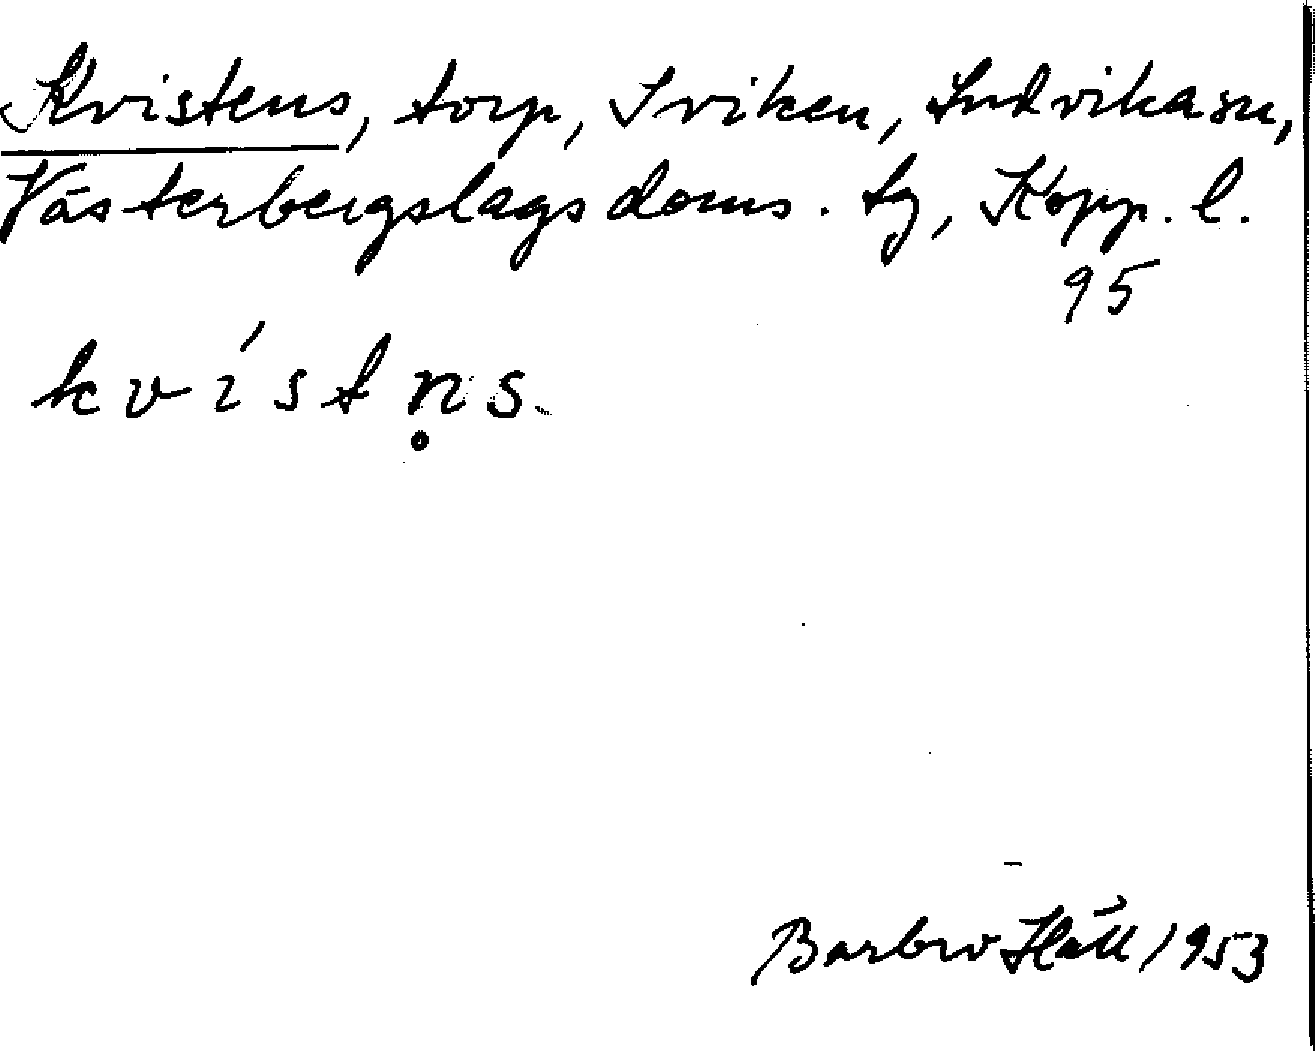 Kvistens, torp, Iviken, Ludvika sn,
Västerbergslags doms. tg, Kopp. l.
95
kvístn̥s.
Barbro Häll 1953